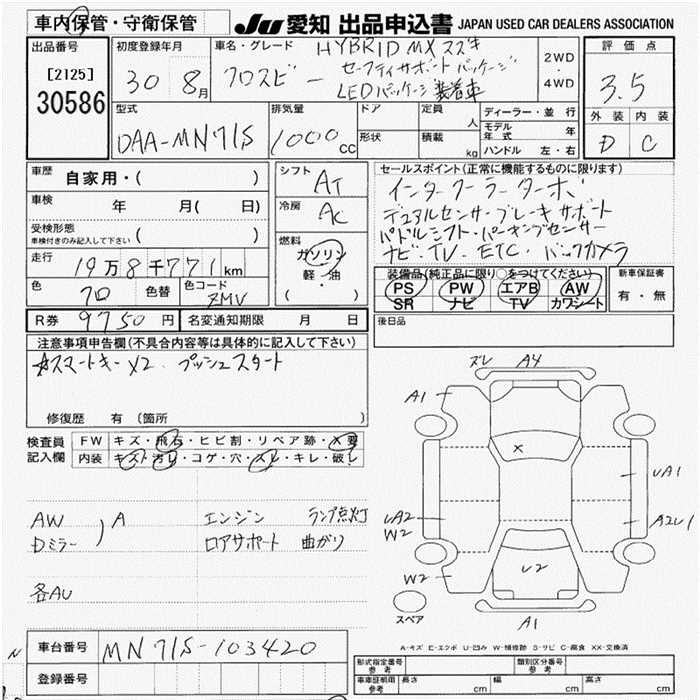 車内保管・守衛保管
JU 愛知 出品申込書 JAPAN USED CAR DEALERS ASSOCIATION
出品番号
[2125]
30586
初度登録年月
30 8月
車名・グレード
HYBRID MX スズキ
クロスビー
セーフティサポートパッケージ
LEDパッケージ装着車
2WD
・
4WD
評価点
3.5
外装 内装
D C
型式
DAA-MN71S
排気量
1000cc
ドア
形状
定員 人
積載 kg
ディーラー・並行
モデル年式 年
ハンドル 左・右
車歴 自家用・( )
車検 年 月(日)
受検形態
車検付きのみ記入して下さい ( )
走行 19万8千771km
色 クロ 色替 色コード ZMV
シフト AT
冷房 AC
燃料
ガソリン
軽・油
( )
セールスポイント(正常に機能するものに限ります)
インタークーラーターボ
デュアルセンサーブレーキサポート
パドルシフト・パーキングセンサー
ナビ・TV・ETC・バックカメラ
装備品(純正品に限り○をつけてください)
PS PW エアB AW
SR ナビ TV カワシート
新車保証書
有・無
R券 9750円 名変通知期限 月 日
後日品
注意事項申告欄(不具合内容等は具体的に記入して下さい)
☆スマートキー×2 プッシュスタート
修復歴 有 (箇所 )
検査員記入欄
FW キズ・飛石・ヒビ割・リペア跡・X要
内装 キズ・汚レ・コゲ・穴・スレ・キレ・破レ
AW
Dミラー ) A
エンジン ランプ点灯
ロアサポート 曲がり
各AU
ズレ A4
A1
X
UA1
UA2
W2
A2U1
W2
U2
A1
スペア
A-キズ E-エクボ U-凹み W-補修跡 S-サビ C-腐食 XX-交換済
N
車台番号 MN71S-103420
登録番号
形式指定番号 参考
類別区分番号 参考
車庫証明用 参考 長さ cm 幅 cm 高さ cm